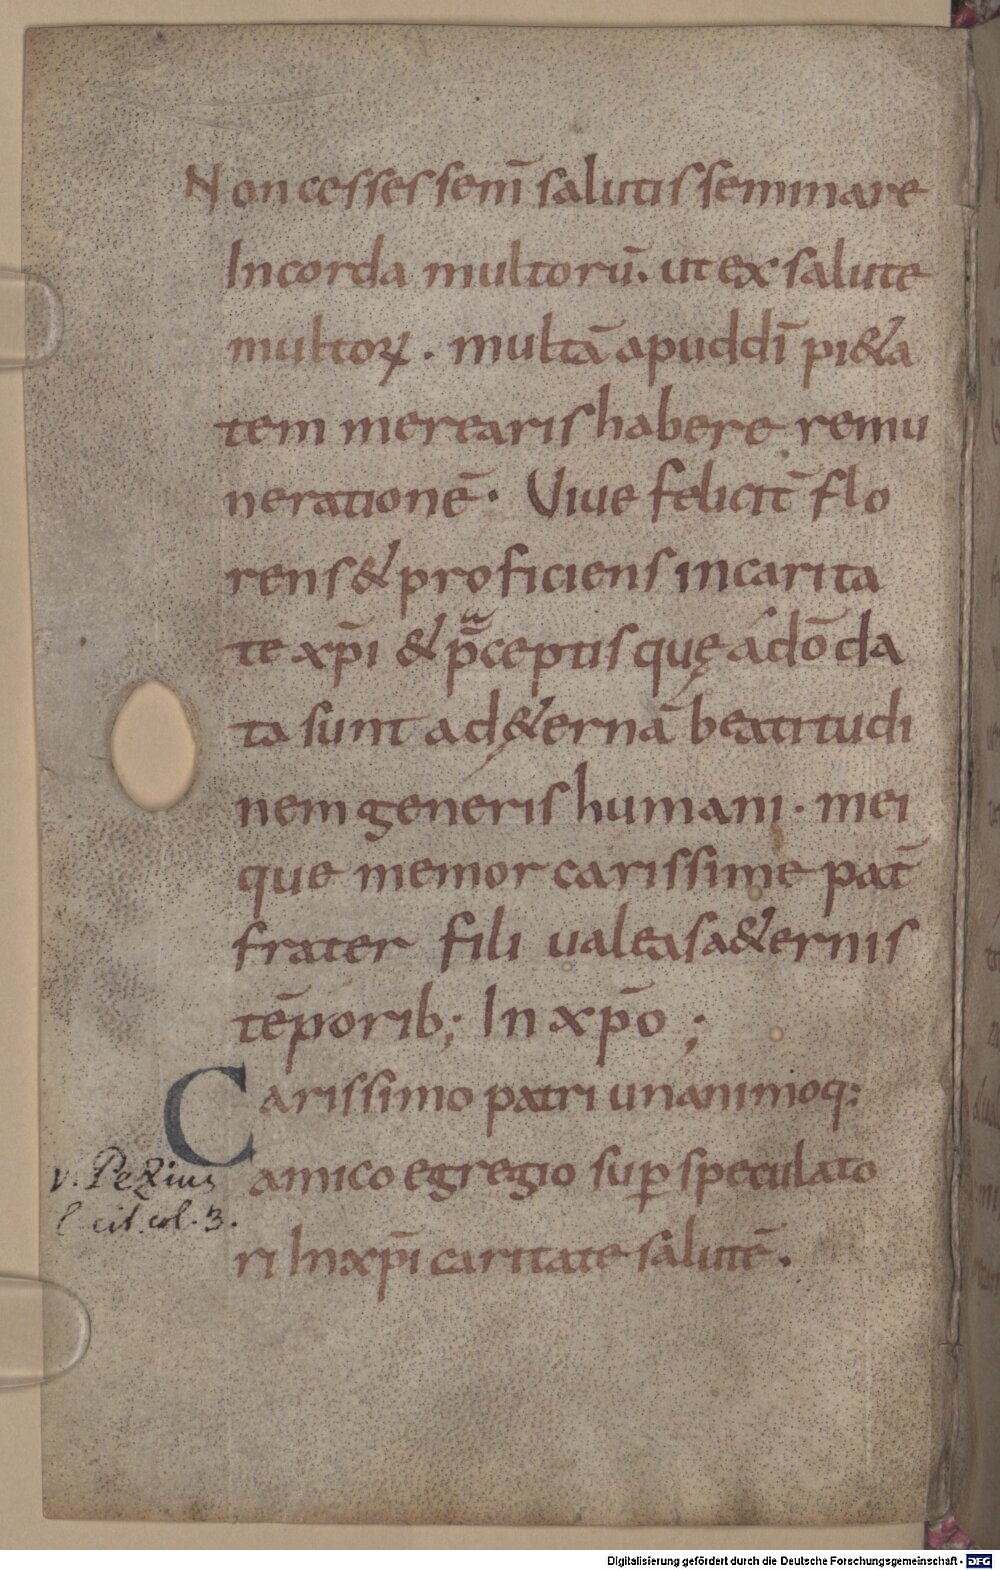 Non cesses sem̄ salutis seminare
In corda multorū. ut ex salute
multoꝝ. multā apud dī pi&a
tem merearis habere remu
nerationē. Vive felicit̄ flo
rens & proficiens in carita
te xp̄i & p̄ceptis quę a dō da
ta sunt ad &ernā beatitudi
nem generis humani. mei
que memor carissime pat̄
frater fili valeas a&ernis
tēporib; In xp̄o ;
Carissimo patri unanimoq:
amico egregio suꝑ speculato
v. Pezius
l. cit. col. 3.
ri In xp̄i caritate salutē.
Digitalisierung gefördert durch die Deutsche Forschungsgemeinschaft - DFG